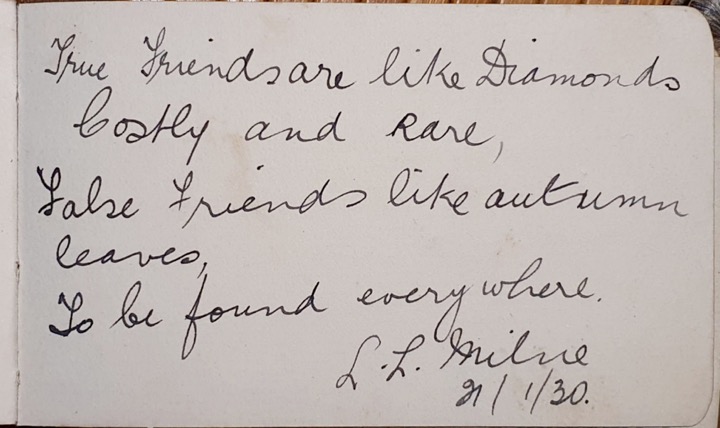 True Friends are like Diamonds
Costly and Rare,
False Friends like autumn
leaves,
To be found everywhere.
L. L. Milne
21/1/30.